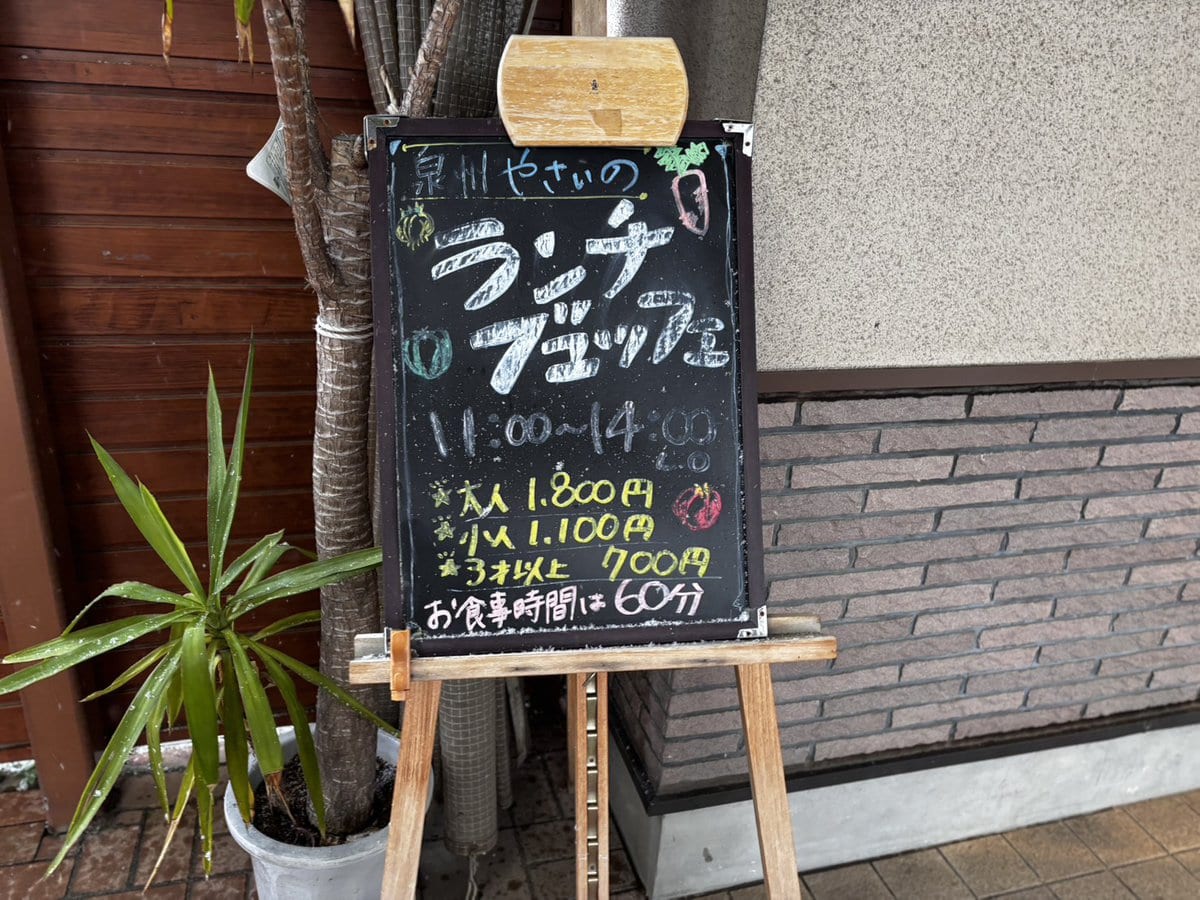 泉州やさいの
ランチ
ブュッフェ
11:00~14:00
L.O
大人 1.800円
小人 1.100円
3才以上 700円
お食事時間は60分